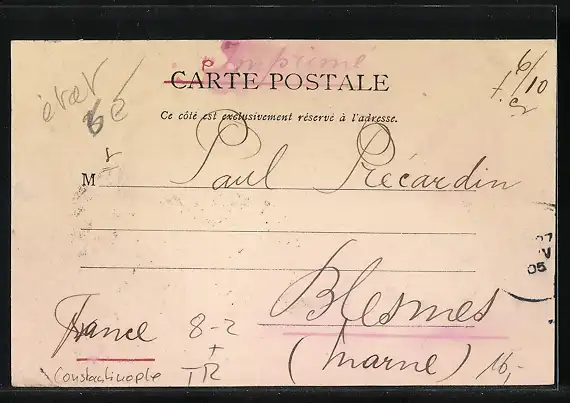 Imprimé
CARTE POSTALE
6/10
Ce côté est exclusivement réservé à l'adresse.
Mr Paul Précardin
05
Blesmes
France 8-2
(Marne) 16,-
Constantinople TR